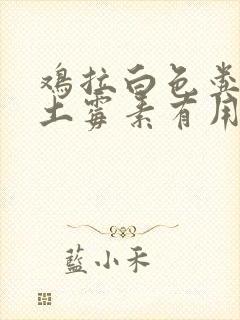 鸡拉白色粪
土霉素有用
藍小禾